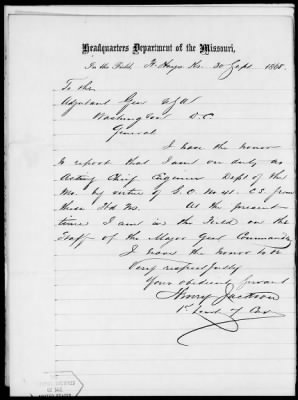 Headquarters Department of the Missouri,
In the Field, Ft. Hays Ks. 30 Sept. 1868.
To the
Adjutant Genl U.S.A.
Washington D.C.
General
I have the honor
to report that I am on duty as
Acting Chief Engineer Dept of the
Mo. by virtue of S.O. No C.S. from
these Hd Qrs. At the present
time I am in the Field on the
Staff of the Major Genl Commanding
I have the honor to be
Very respectfully
Your obedient servant
Henry Jackson
1st Lieut 7 Cav